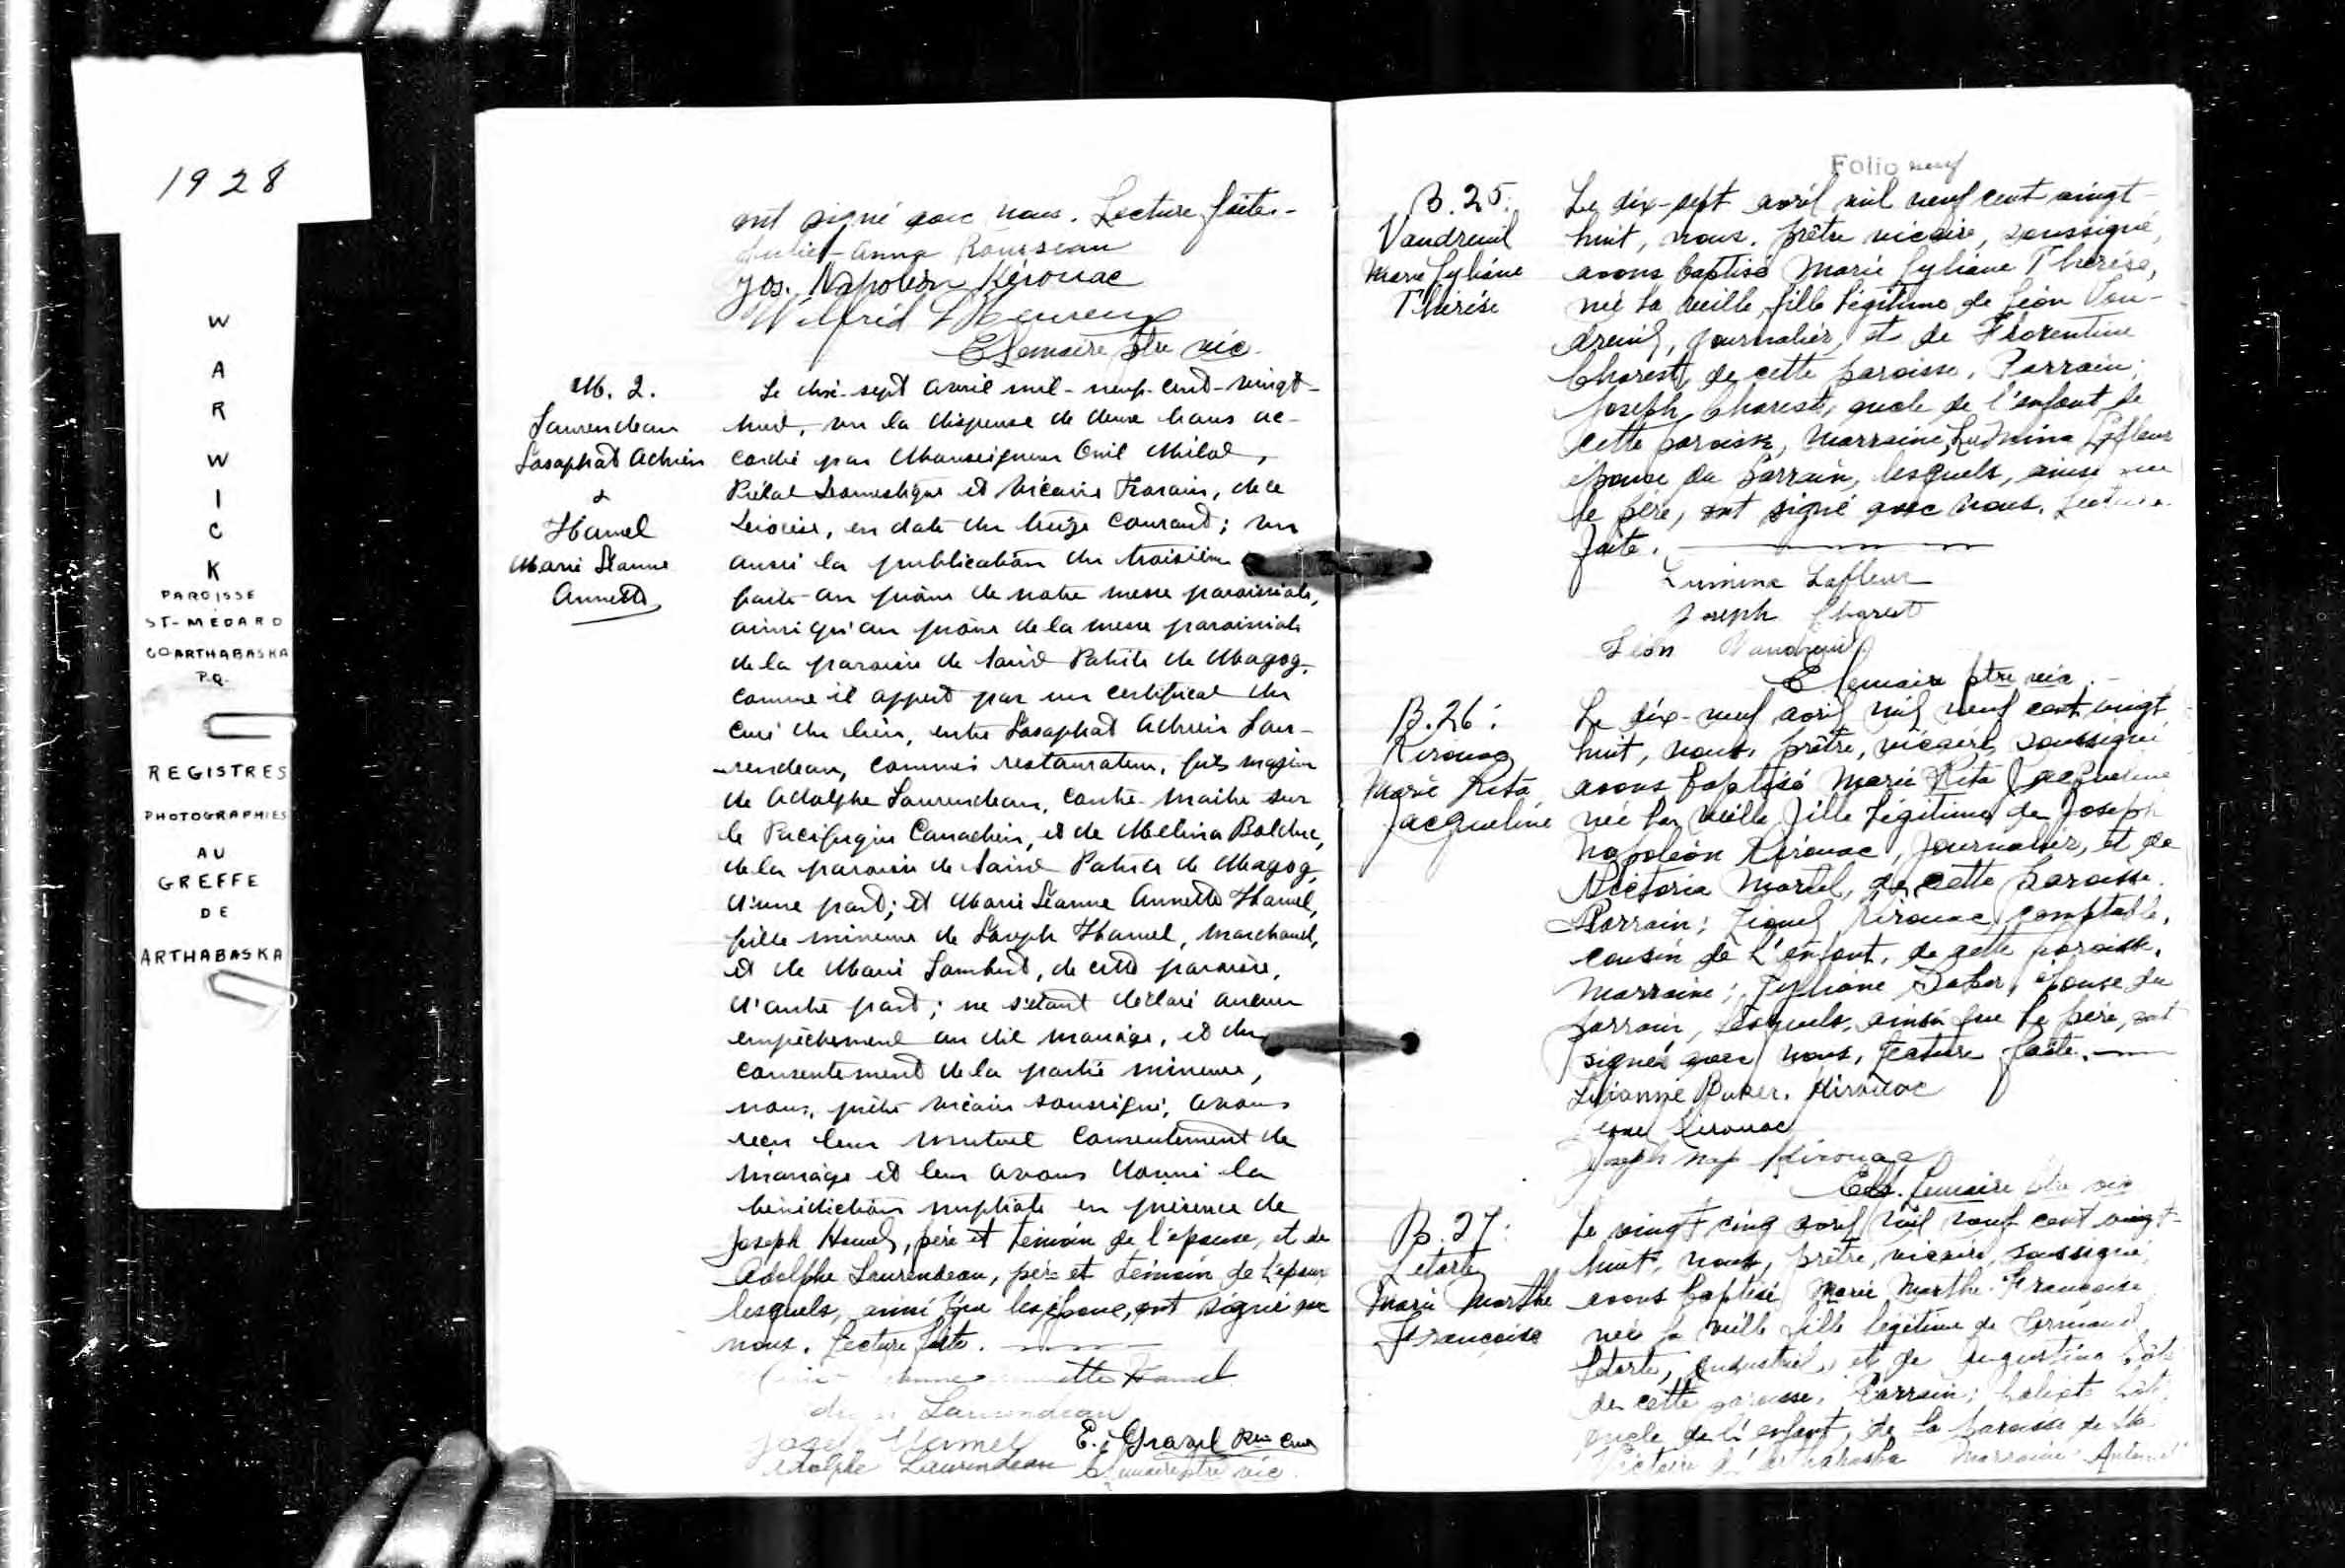 1928
WARWICK
PAROISSE
ST-MÉDARD
CO ARTHABASKA
P.Q.
REGISTRES
PHOTOGRAPHIES
AU
GREFFE
DE
ARTHABASKA
ont signé avec nous. Lecture faite.-
Anna Rousseau
Jos. Napoléon Kérouac
Wilfrid
E Lemaire ptre vic.
M. 2.
Laurendeau
Josaphat Adrien
&
Hamel
Marie Jeanne
Annette
Le dix-sept avril mil-neuf-cent-vingt-
huit, vu la dispense de deux bans ac-
cordée par Monseigneur Onil Milot,
Prélat Domestique et Vicaire Forain, de ce
diocèse, en date du treize courant; vu
aussi la publication du troisième
faite au prône de notre messe paroissiale,
ainsi qu'au prône de la messe paroissiale
de la paroisse de Saint Patrice de Magog,
comme il appert par un certificat du
curé du lieu, entre Josaphat Adrien Lau-
rendeau, commis restaurateur, fils majeur
de Adolphe Laurendeau, contre-maître sur
le Pacifique Canadien, et de Melina Bolduc,
de la paroisse de Saint Patrice de Magog,
d'une part; et Marie Jeanne Annette Hamel,
fille mineure de Joseph Hamel, marchand,
et de Marie Lambert, de cette paroisse,
d'autre part; ne s'étant déclaré aucun
empêchement au dit mariage, et du
consentement de la partie mineure,
nous, prêtre vicaire soussigné, avons
reçu leur mutuel consentement de
mariage et leur avons donné la
bénédiction nuptiale en présence de
Joseph Hamel, père et témoin de l'épouse, et de
Adolphe Laurendeau, père et témoin de l'époux
lesquels, ainsi que les époux, ont signé avec
nous. Lecture faite.
Hamel
Laurendeau
Joseph Hamel E. Gravel Ptre Curé
Adolphe Laurendeau E Lemaire ptre vic.
Folio neuf
B. 25.
Vaudreuil
Marie Lyliane
Thérèse
Le dix-sept avril mil neuf cent vingt-
huit, nous, prêtre vicaire, soussigné,
avons baptisé Marie Lyliane Thérèse,
née la veille, fille légitime de Léon Vau-
dreuil, journalier, et de Florentine
Charest, de cette paroisse. Parrain:
Joseph Charest, oncle de l'enfant de
cette paroisse, Marraine, Lumina Lafleur
épouse du parrain, lesquels, ainsi que
le père, ont signé avec nous. Lecture
faite.
Lumina Lafleur
Joseph Charest
Léon Vaudreuil
E Lemaire ptre vic.-
B. 26:
Kirouac
Marie Rita
Jacqueline
Le dix-neuf avril mil neuf cent vingt
huit, nous, prêtre, vicaire, soussigné
avons baptisé Marie Rita Jacqueline
née la veille, fille légitime de Joseph
Napoléon Kirouac, journalier, et de
Victoria Martel, de cette paroisse.
Parrain: Lionel Kirouac, comptable,
cousin de l'enfant, de cette paroisse.
Marraine: Lyliane Baker, épouse du
parrain, lesquels, ainsi que le père, ont
signé avec nous, Lecture faite.
Lilianne Baker. Kirouac
Lionel Kirouac
Joseph Nap Kirouac
Ed. Lemaire ptre vic
B. 27:
Letarte
Marie Marthe
Françoise
Le vingt cinq avril mil neuf cent vingt-
huit, nous, prêtre, vicaire, soussigné,
avons baptisé Marie Marthe Françoise
née la veille fille légitime de Armand
Letarte, industriel, et de Augustina Côté
de cette paroisse. Parrain: Calixte Côté
oncle de l'enfant, de la paroisse de St
Victoire d'Arthabaska Marraine: